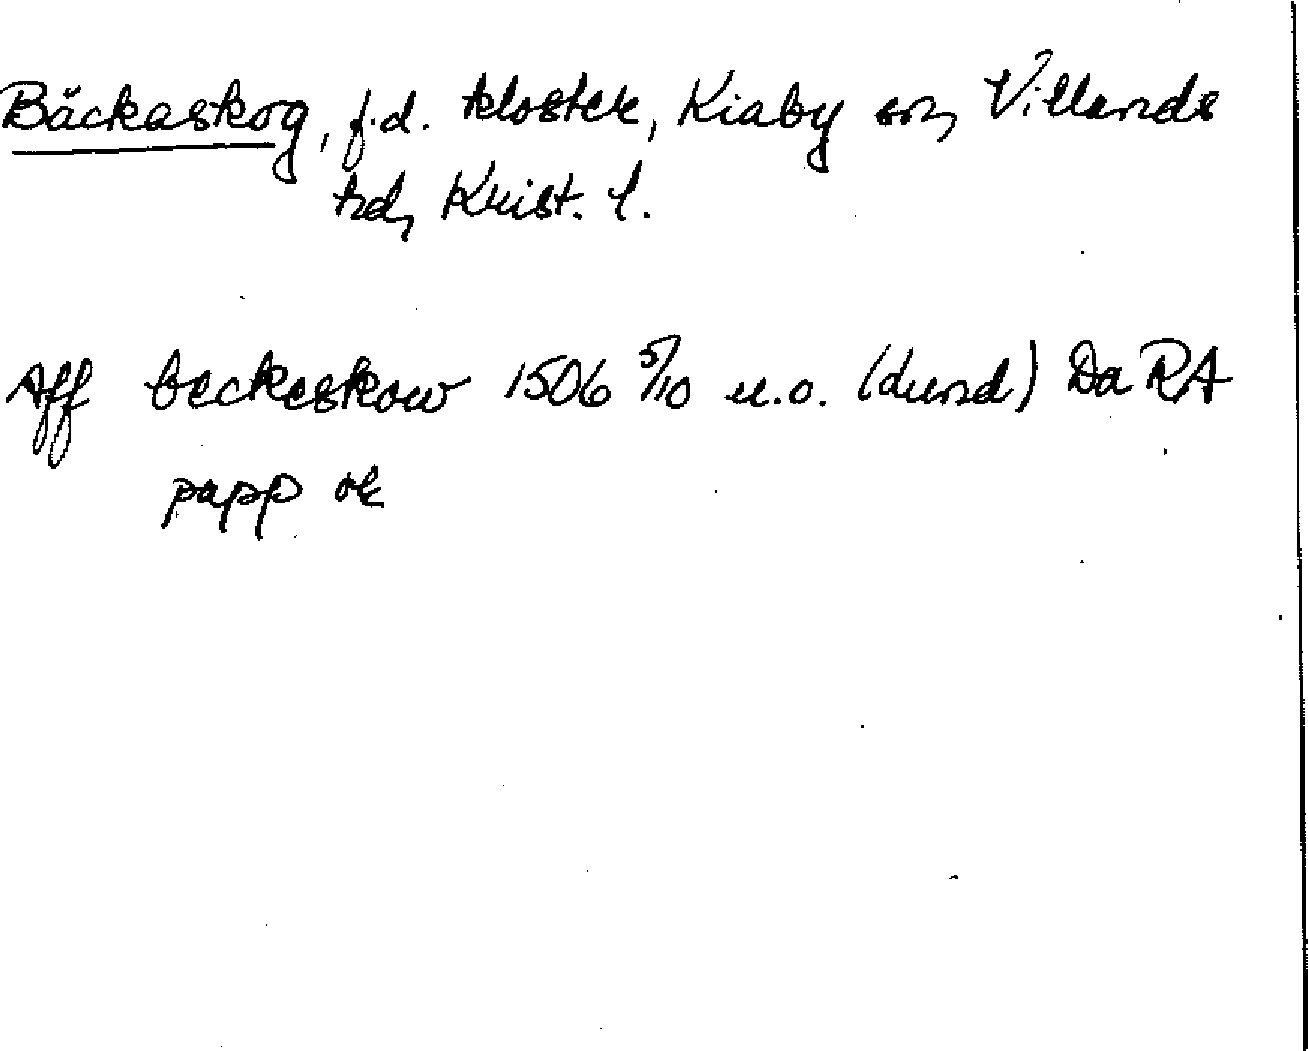 Bäckaskog, f.d. kloster, Kiaby sn, Villands
hd, Krist. l.
Aff beckeskow 1506 5/10 u.o. (Lund) Da RA
papp or